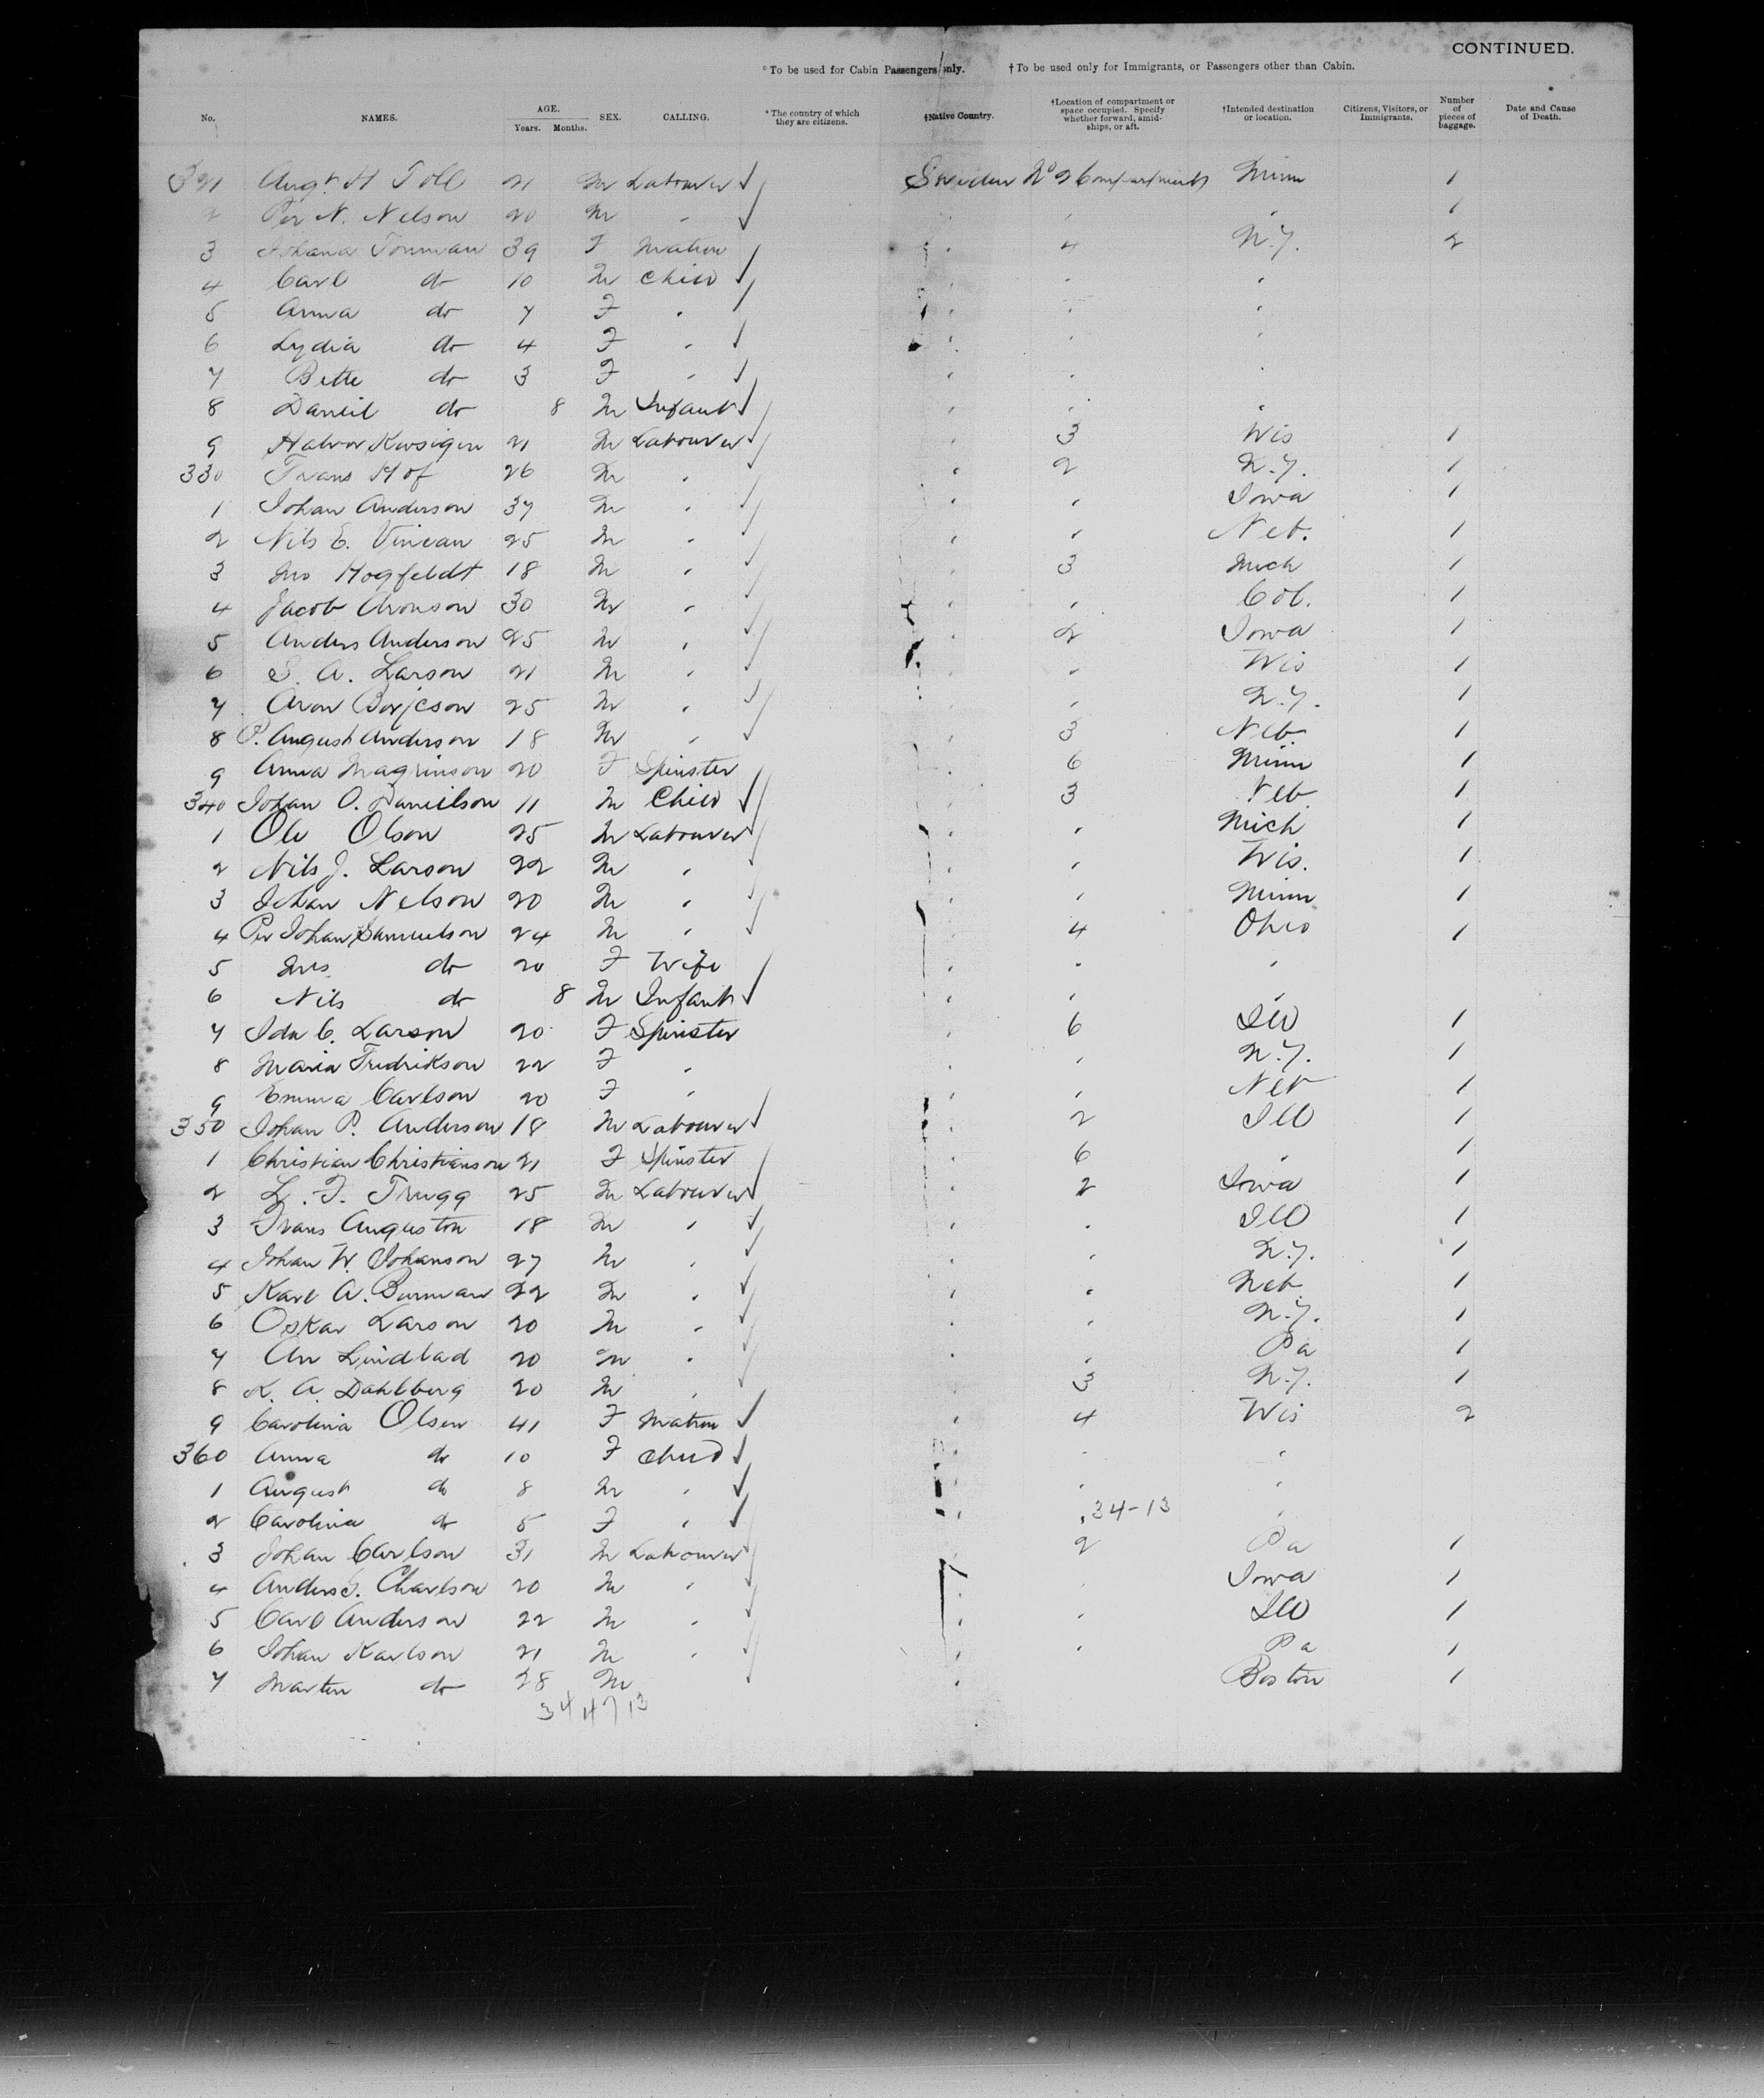 CONTINUED.
*To be used for Cabin Passengers only. †To be used only for Immigrants, or Passengers other than Cabin.
No. NAMES. AGE. Years. Months. SEX. CALLING. *The country of which they are citizens. †Native Country. †Location of compartment or space occupied. Specify whether forward, amidships, or aft. †Intended destination or location. Citizens, Visitors, or Immigrants. Number of pieces of baggage. Date and Cause of Death.
321 Augt H Toll 21 M Labourer Sweden No 2 Compartment Minn 1
2 Per N. Nelson 20 M " " " " 1
3 Johana Tornman 39 F Matron " 4 N.Y. 2
4 Carl do 10 M Child " " "
5 Anna do 7 F " " " "
6 Lydia do 4 F " " " "
7 Bette do 3 F " " " "
8 Daniel do 8 M Infant " " "
9 Halvor 21 M Labourer " 3 Wis 1
330 Frans Hof 26 M " " 2 N.Y. 1
1 Johan Anderson 37 M " " " Iowa 1
2 Nils E. 25 M " " " Neb. 1
3 Hogfeldt 18 M " " 3 Mich 1
4 Jacob Aronson 30 M " " " Col. 1
5 Anders Anderson 25 M " " 2 Iowa 1
6 S. A. Larson 21 M " " " Wis 1
7 Aron Borjeson 25 M " " " N.Y. 1
8 P. August Anderson 18 M " " 3 Neb. 1
9 Anna Magninson 20 F Spinster " 6 Minn 1
340 Johan O. Danielson 11 M Child " 3 Neb 1
1 Ole Olson 25 M Labourer " " Mich 1
2 Nils J. Larson 22 M " " " Wis. 1
3 Johan Nelson 20 M " " " Minn 1
4 Per Johan Samuelson 24 M " " 4 Ohio 1
5 Mrs do 20 F Wife " " "
6 Nils do 8 M Infant " " "
7 Ida C. Larson 20 F Spinster " 6 Ill 1
8 Maria Fredrikson 22 F " " " N.Y. 1
9 Emma Carlson 20 F " " " Neb 1
350 Johan P. Anderson 18 M Labourer " 2 Ill 1
1 Christian Christianson 21 F Spinster " 6 " 1
2 L. F. Trugg 25 M Labourer " 2 Iowa 1
3 Frans Auguston 18 M " " " Ill 1
4 Johan W. Johanson 27 M " " " N.Y. 1
5 Karl A. Burman 22 M " " " Neb 1
6 Oskar Larson 20 M " " " N.Y. 1
7 An Lindblad 20 M " " " Pa 1
8 K. A. Dahlberg 20 M " " 3 N.Y. 1
9 Carolina Olsen 41 F Matron " 4 Wis 2
360 Anna do 10 F Child " " "
1 August do 8 M " " " "
2 Carolina do 5 F " " " 34-13 "
3 Johan Carlson 31 M Labourer " 2 Pa 1
4 Anders J. Charlson 20 M " " " Iowa 1
5 Carl Anderson 22 M " " " Ill 1
6 Johan Karlson 21 M " " " Pa 1
7 Marten do 28 M " Boston 1
34 47 13